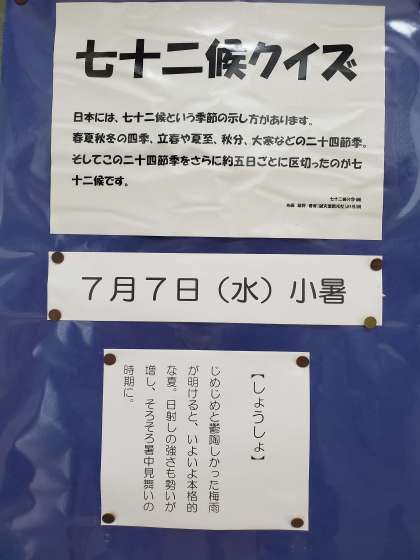 七十二候クイズ
日本には、七十二候という季節の示し方があります。
春夏秋冬の四季、立春や夏至、秋分、大寒などの二十四節季。
そしてこの二十四節季をさらに約五日ごとに区切ったのが七
十二候です。
7月7日（水）小暑
【しょうしょ】
じめじめと鬱陶しかった梅雨
が明けると、いよいよ本格的
な夏。日射しの強さも勢いが
増し、そろそろ暑中見舞いの
時期に。